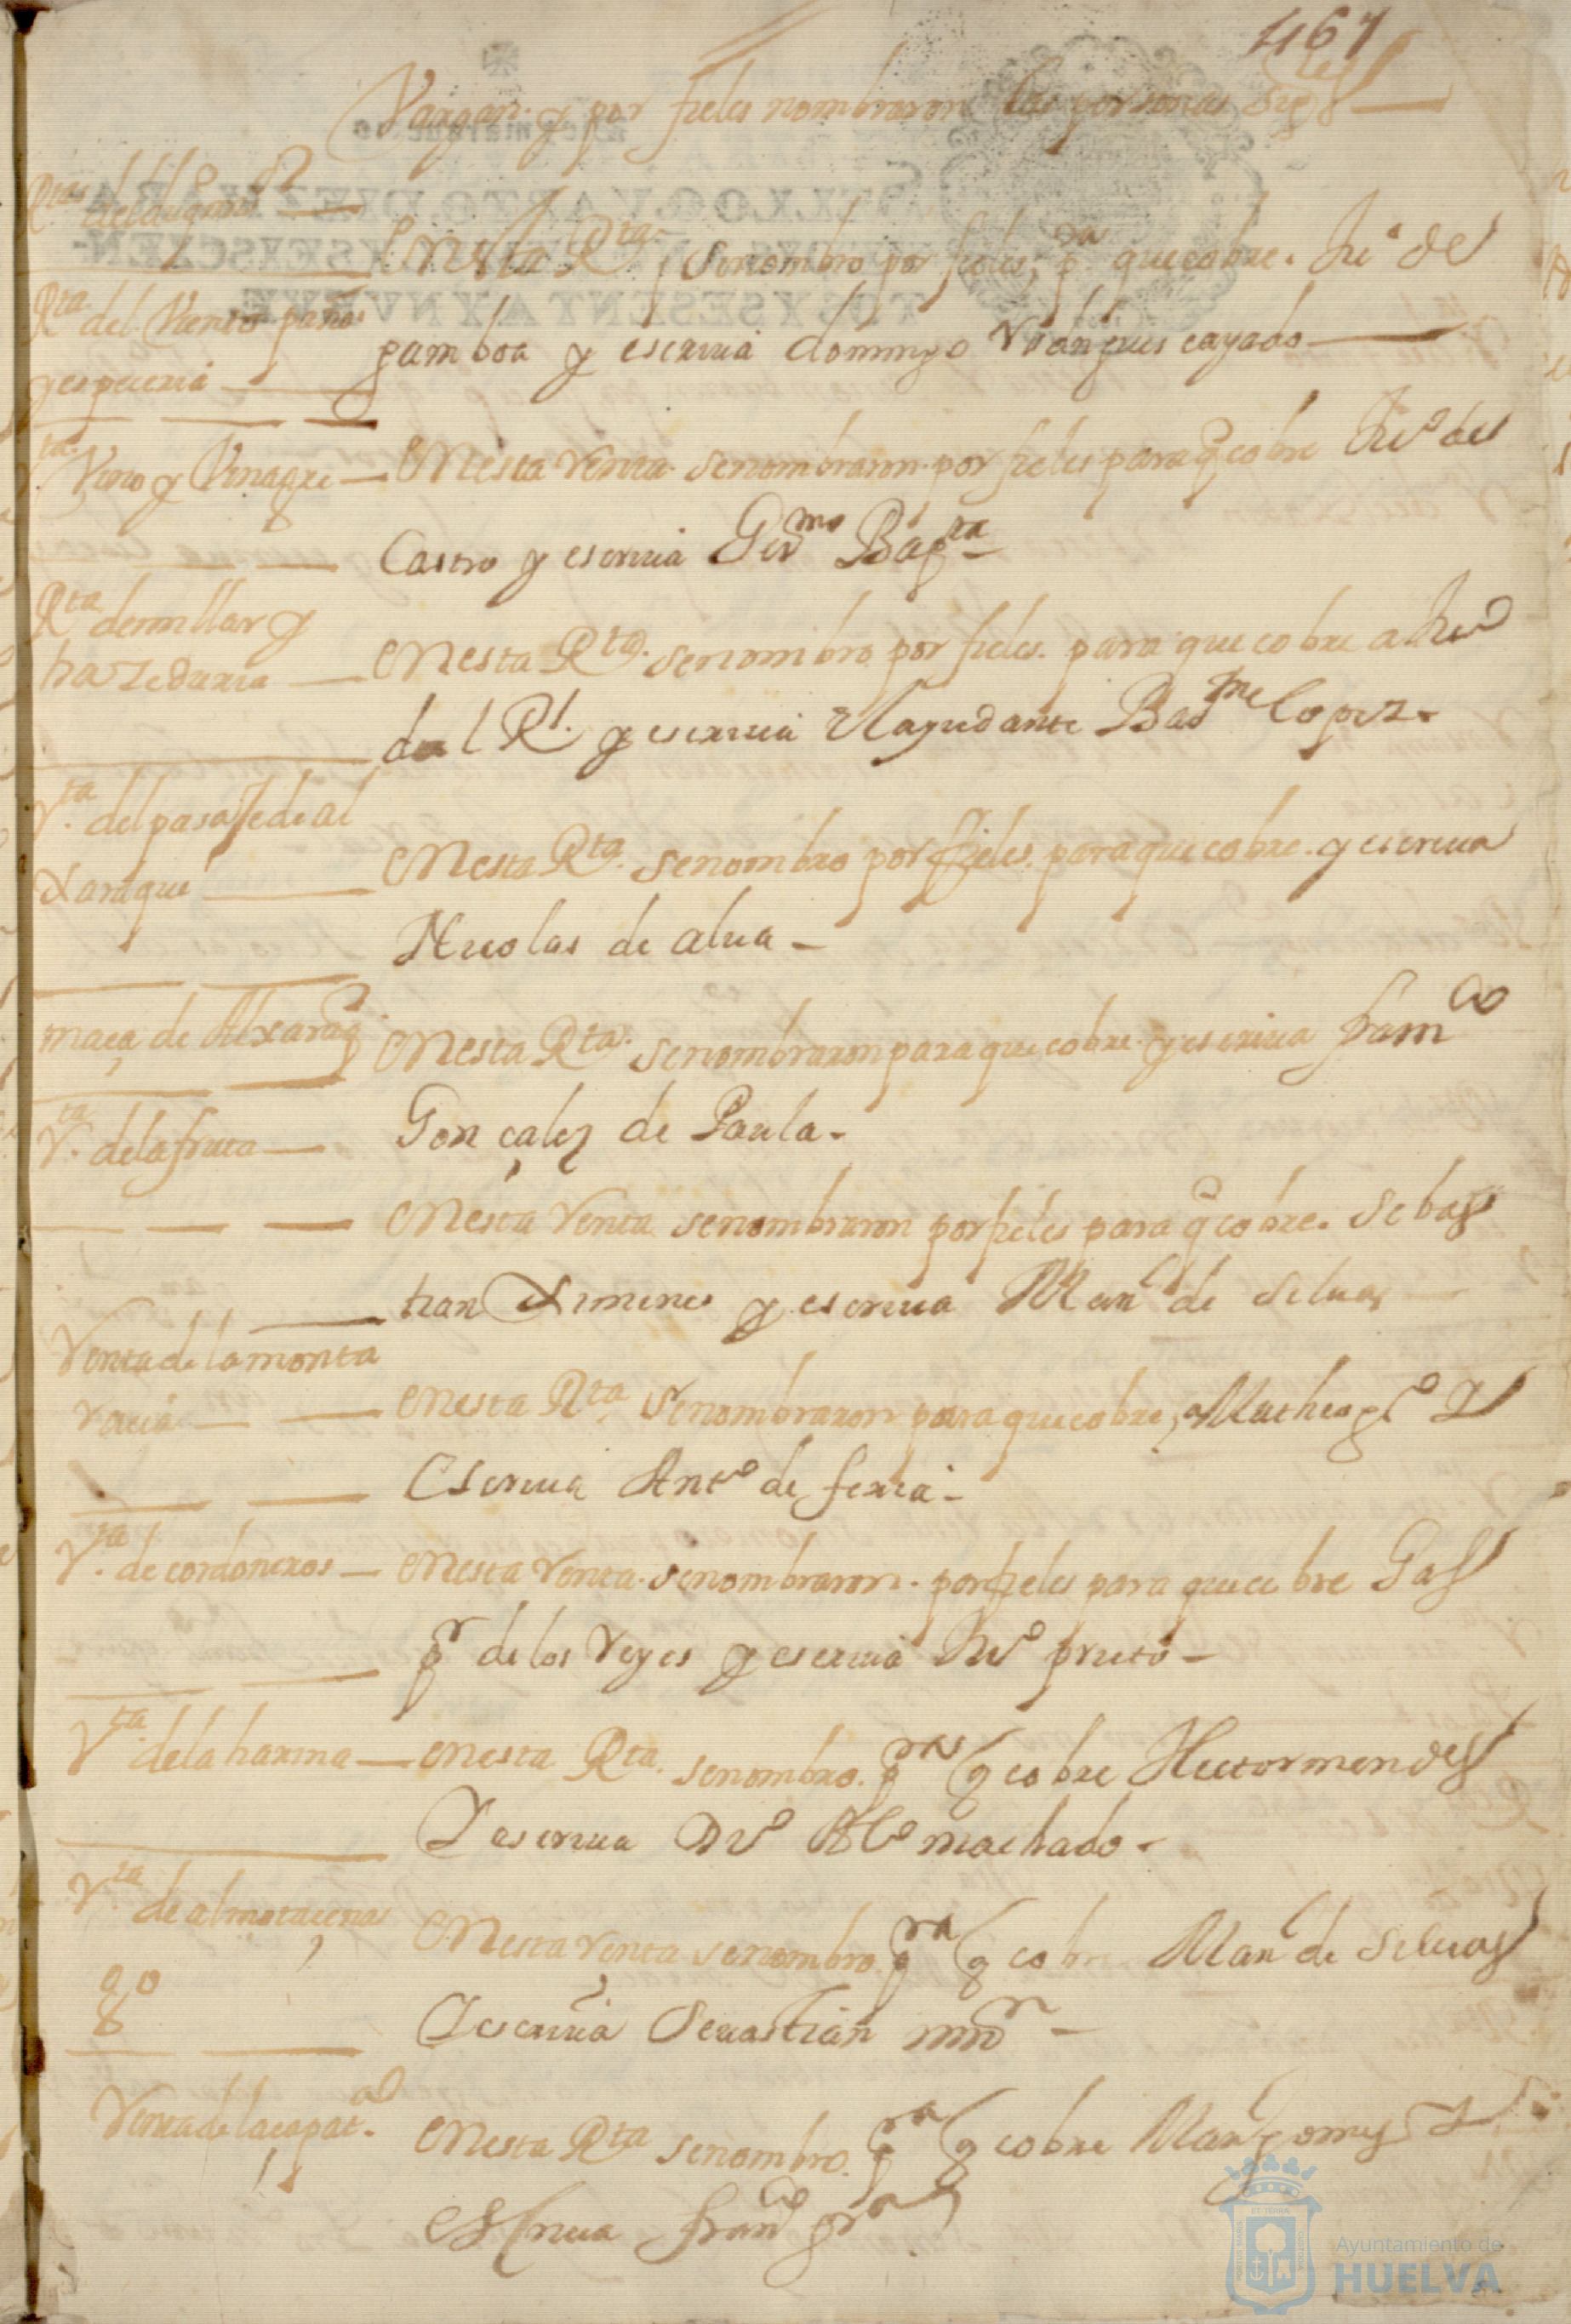 467
Vargas. y por fieles nombraron las personas sigtes
Rta del Viento paños
y especeria
En esta Rta. se nombro por fieles, pra que cobre. Juo de
gamboa y escriua domingo Rodrigues cayado
Rta. Vino y Vinagre
En esta Renta. se nombraron. por fieles para q cobre Juo de
Castro y escriua Germo Bapta
Rta de millar y
hazeduria
En esta Rta. se nombro por fieles. para que cobre a Juo
del Rl. y escriua el ayudante Barme lopez.
Rta. del pasaje de al
Xaraque
En esta Rta. se nombro por fieles. para que cobre. y escriua
Nicolas de alua
maça de Alxaraq
En esta Rta. se nombraron para que cobre. y escriua franco
Gonçalez de Paula.
Rta. de la fruta
En esta Renta se nombraron por fieles para q cobre. Sebas
tian Ximenes y escriua Manl de Silua
Renta de la monta
racia
En esta Rta se nombraron para que cobre, Matheo Y
Escriua Anto de feria
Rta. de cordoneros
En esta Renta. se nombraron. por fieles para que cobre Gas
pr de los Reyes y escriua Juo prieto
Rta. de la harina
En esta Rta. se nombro. pra q cobre Hector mendes
Y escriua Alo machado.
Rta de almotacena
go
En esta Renta se nombro pra q cobre Manl de Siluas
Y escriua Seuastian
Renta de la capat.
En esta Rta se nombro. pra q cobre Manl gomes Y
Escriua franco
Ayuntamiento de
HUELVA